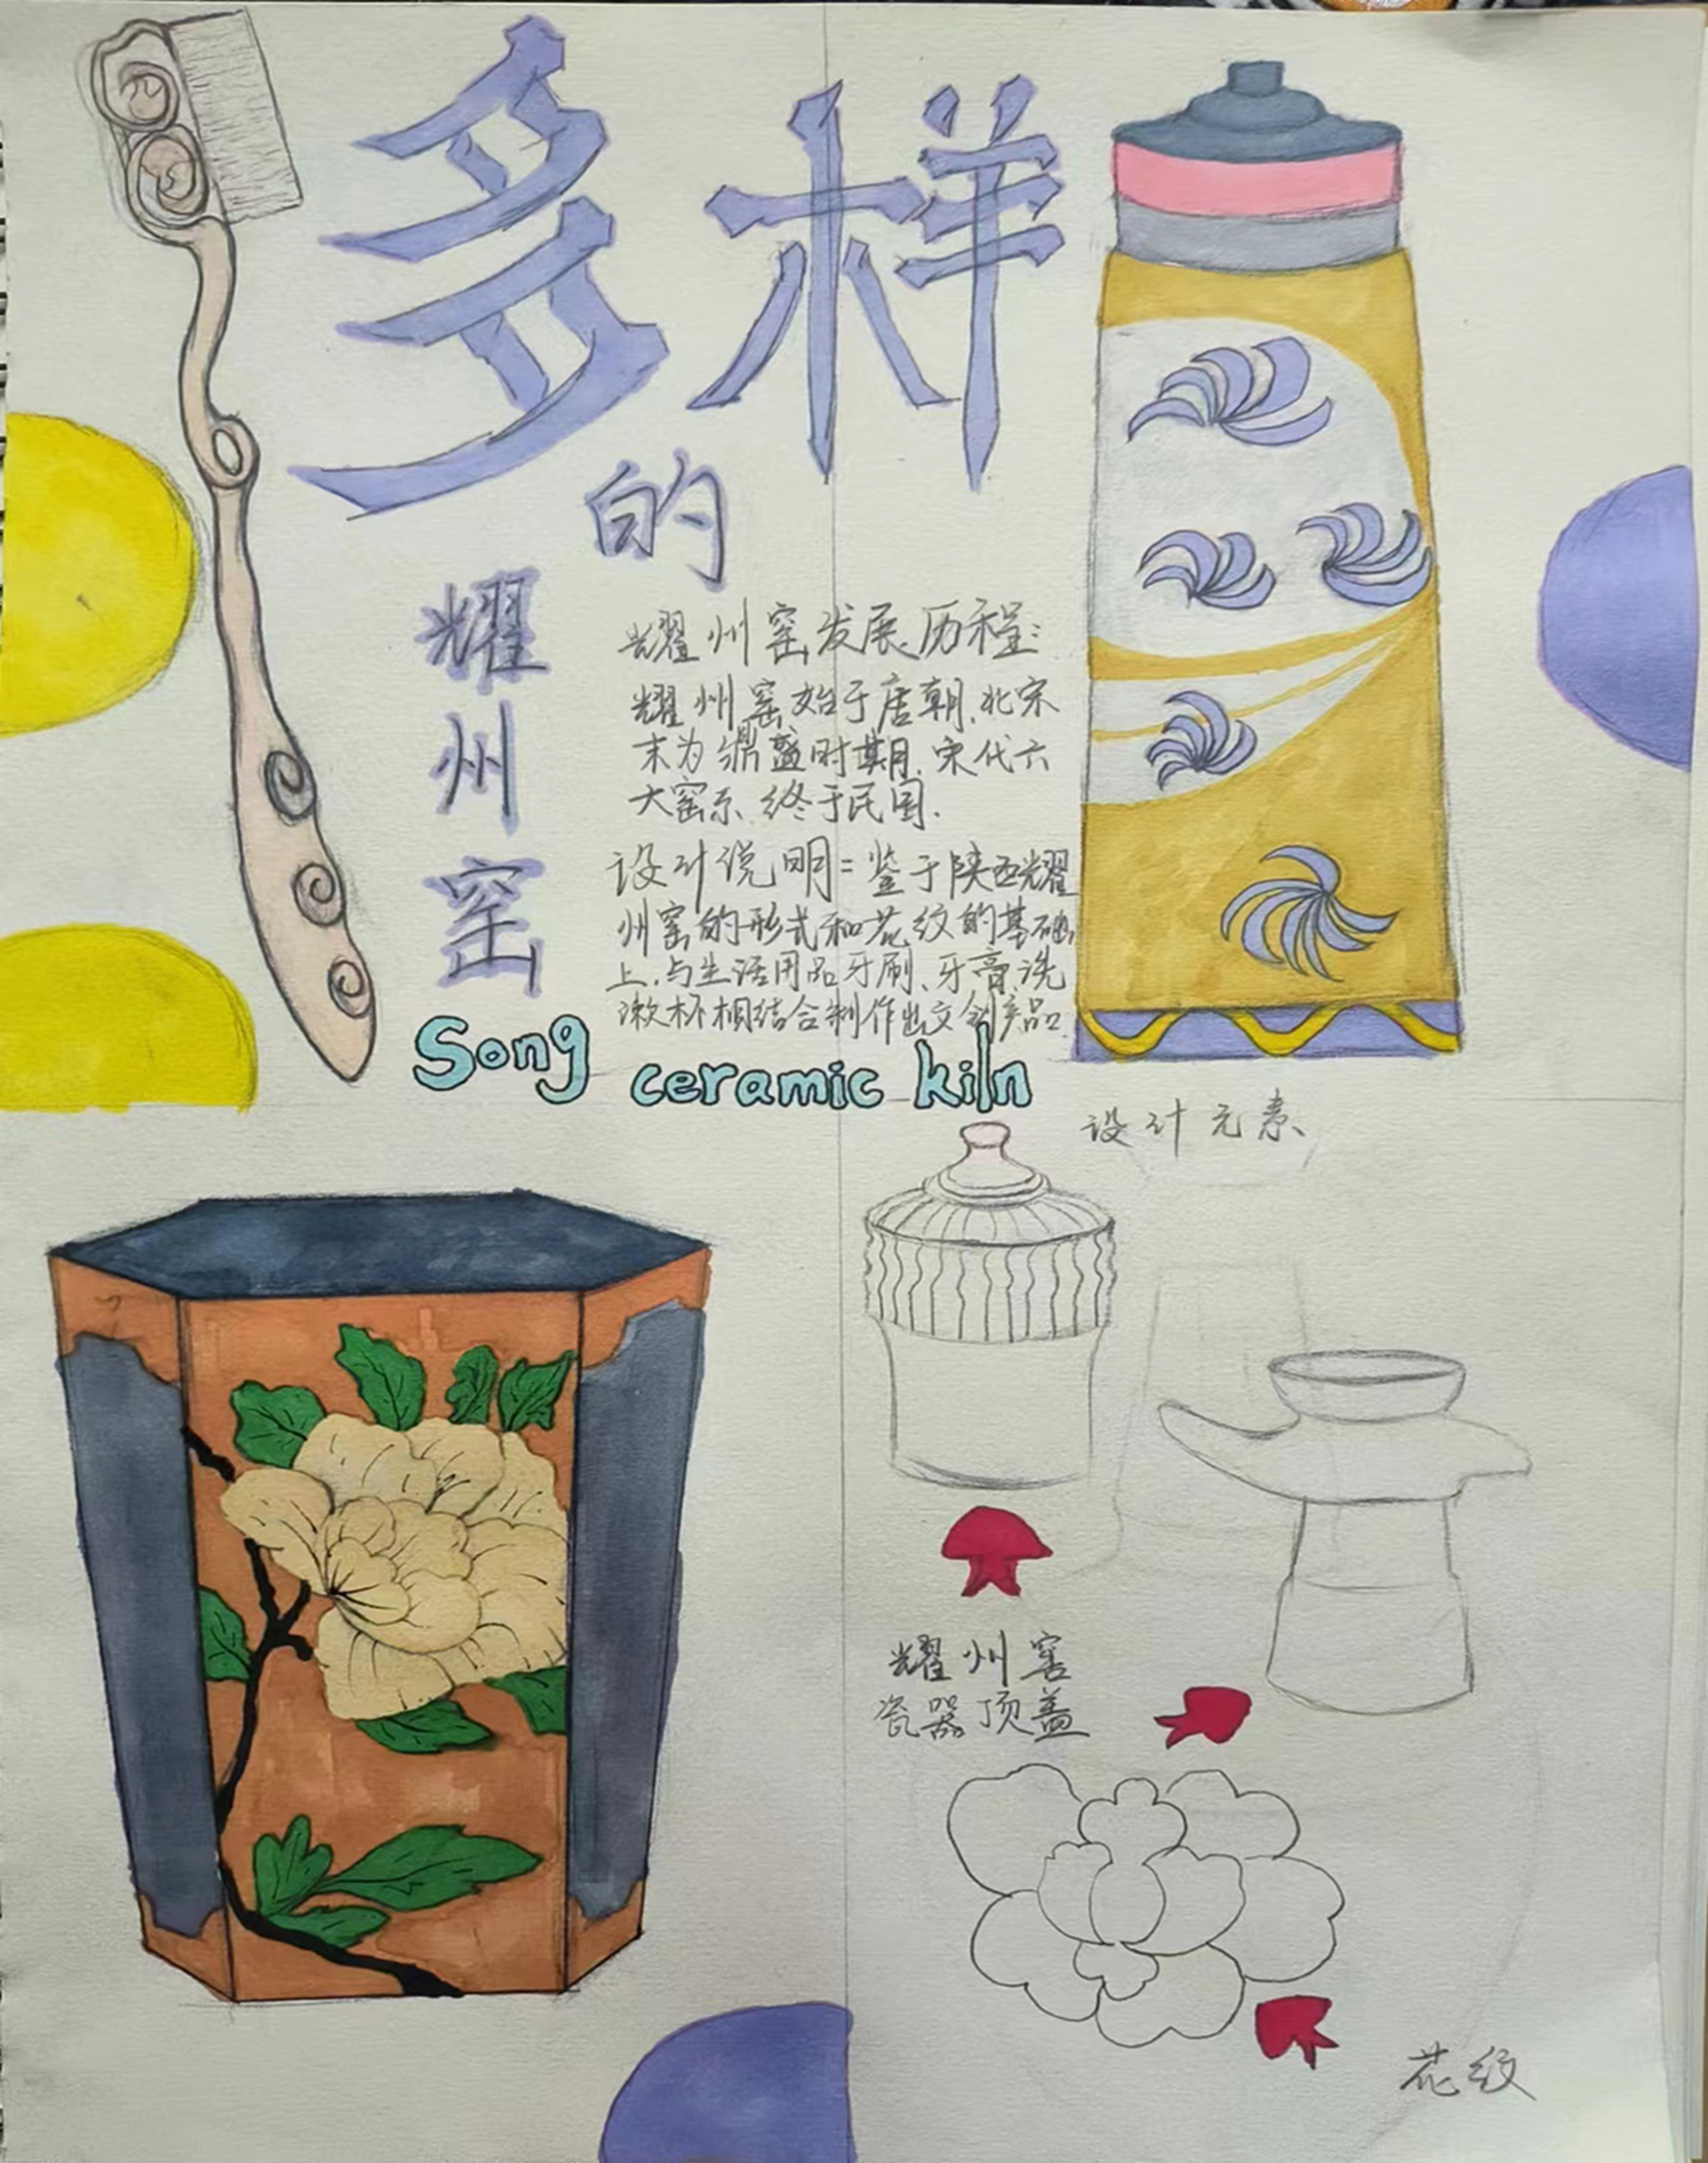 多样
的
耀
州
窑
耀州窑发展历程:
耀州窑始于唐朝.北宋
末为鼎盛时期.宋代六
大窑系.终于民国.
设计说明:鉴于陕西耀
州窑的形式和花纹的基础
上.与生活用品牙刷、牙膏、洗
漱杯相结合制作出文创产品.
Song ceramic kiln
设计元素、
耀州窑
瓷器顶盖
花纹